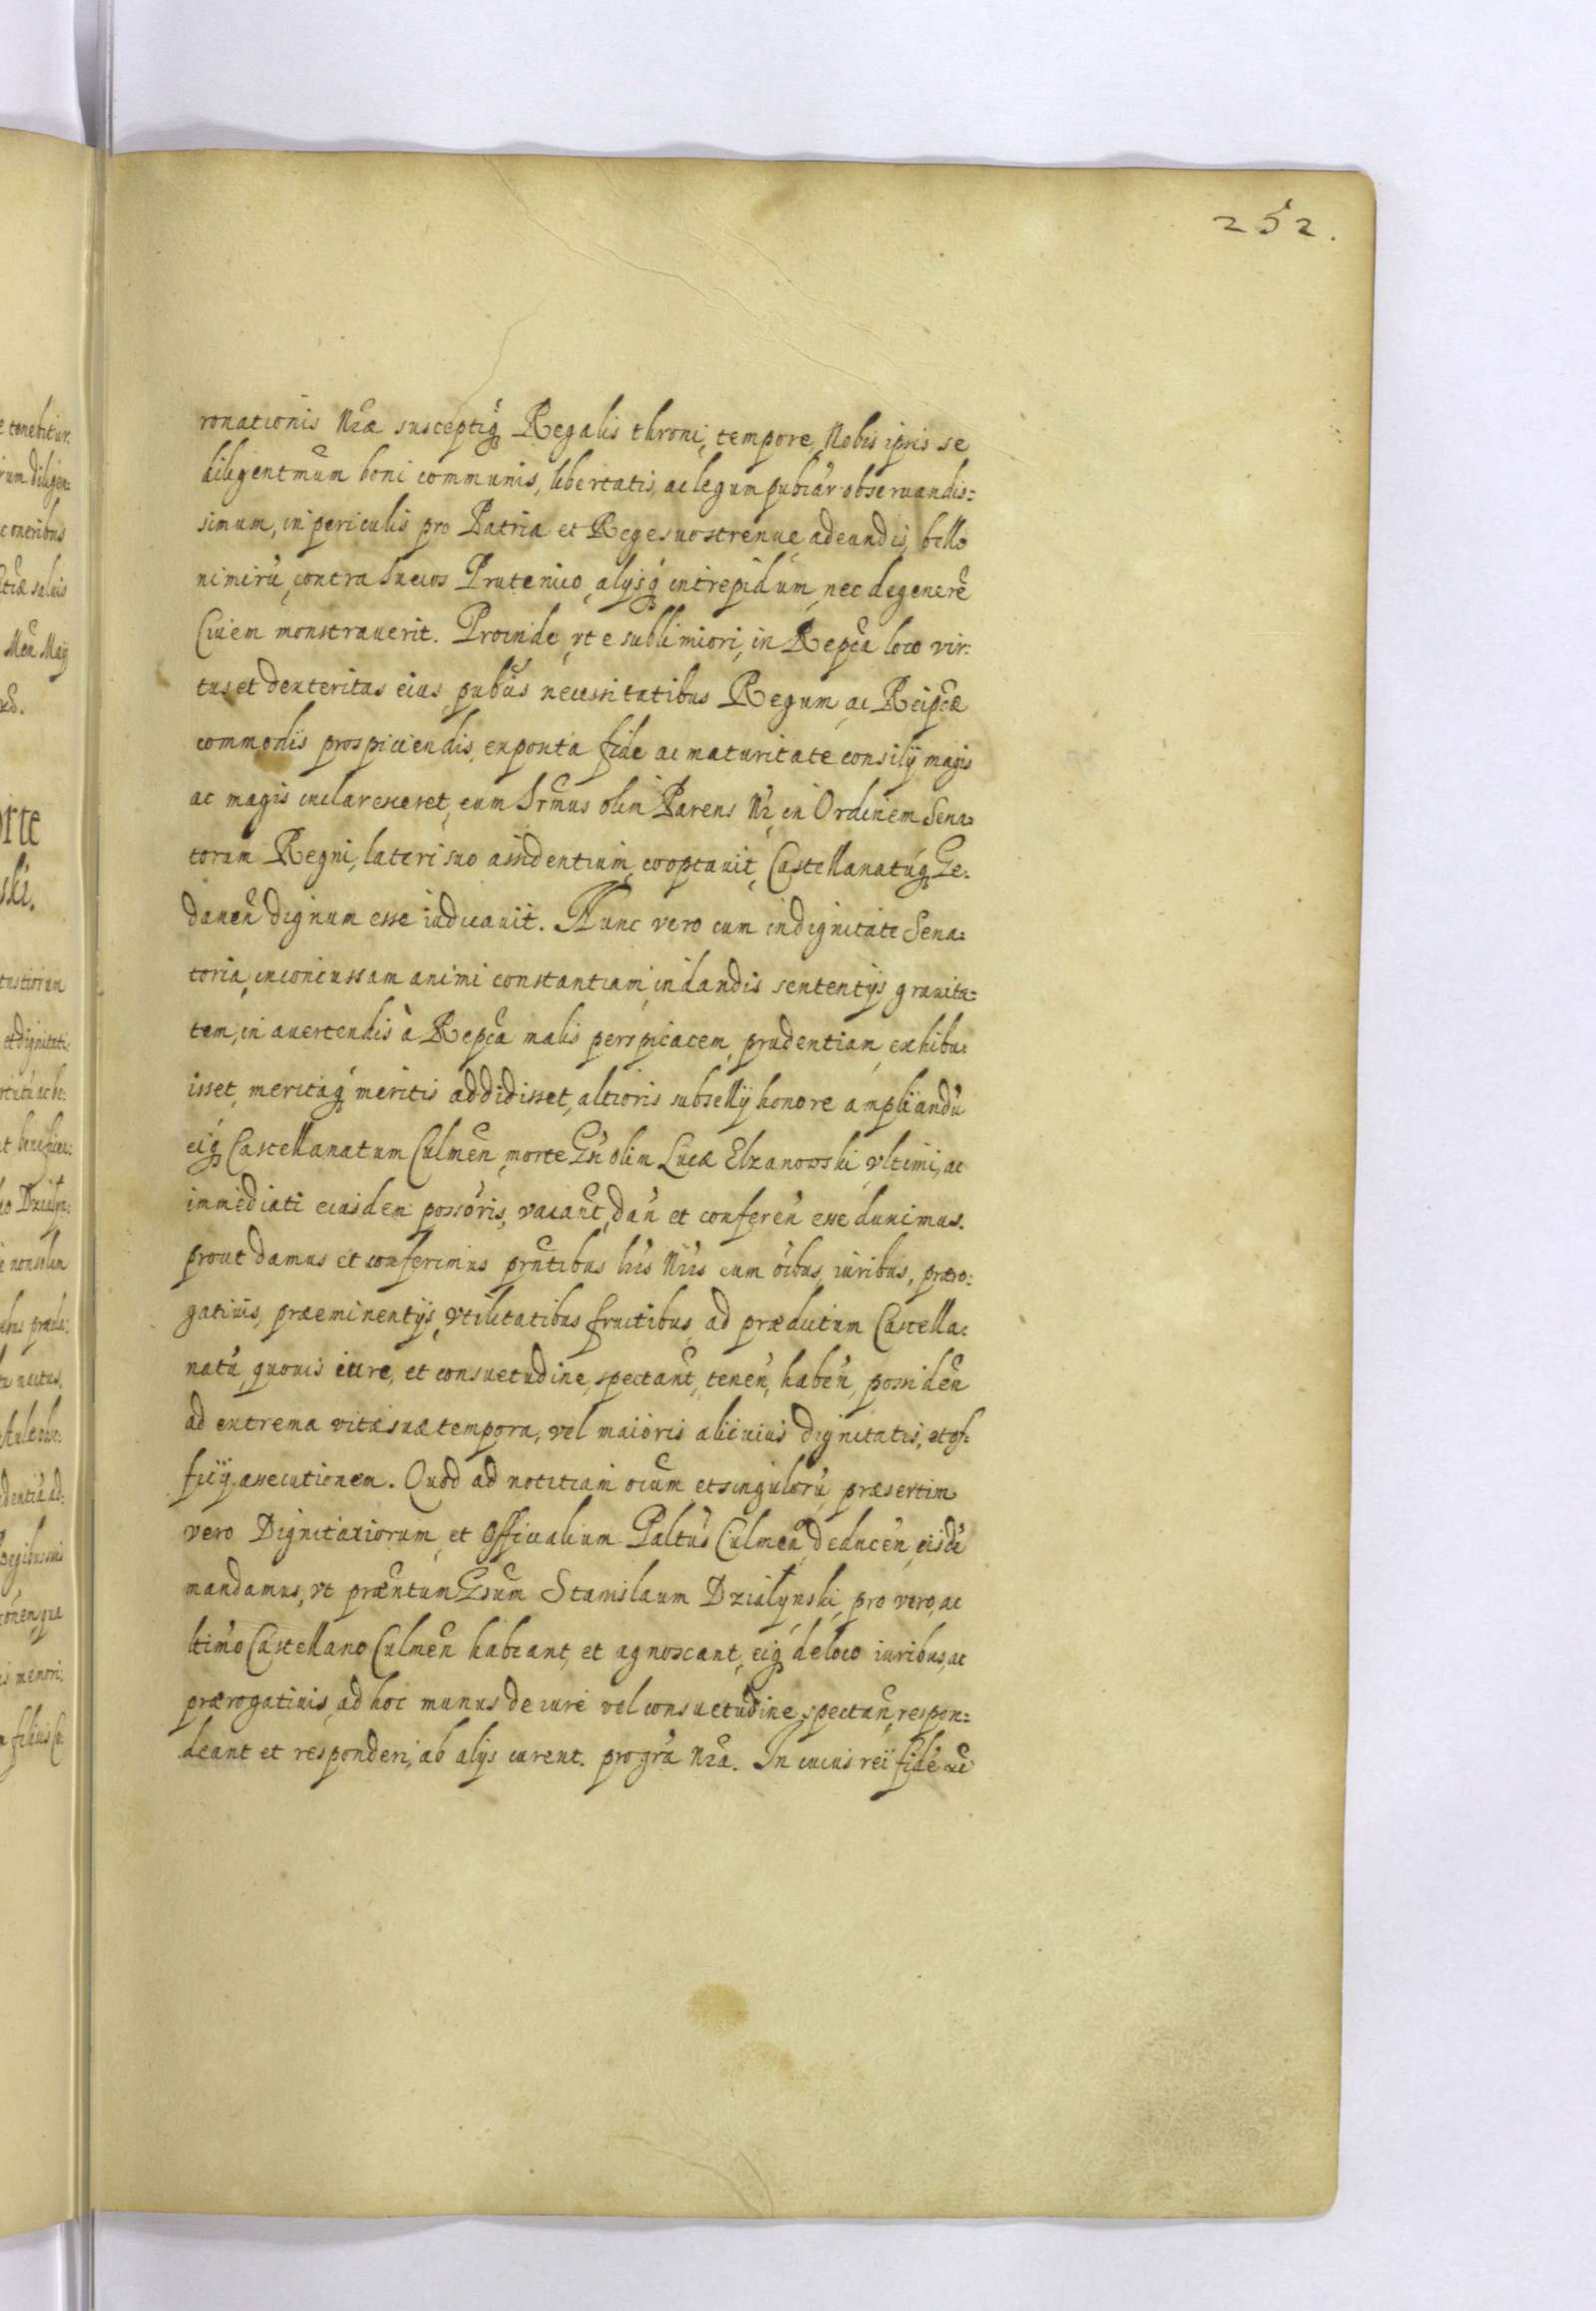 252.
ronationis Nræ susceptiq̃ Regalis throni, tempore, Nobis ipsis se
diligentm̃um boni communis, libertatis, ac legum publ̃car observandis=
simum, in periculis pro Patria et Rege suo strenue adeundis, bello
nimirũ, contra Suecos Prutenico, alijsq̃ intrepidum, nec degenerẽ
Civem monstraverit. Proinde, vt e sublimiori, in Repc̃a loco vir=
tus et dexteritas eius, pub̃cis necessitatibus Regum ac Reipc̃æ
commodis prospiciendis, exponta fide ac maturitate consilÿ magis
ac magis inclaresceret, eum Srm̃us olim Parens Nr̃ in Ordinem Sena=
torum Regni, lateri suo assidentium, cooptauit, Castellanatuq̃ Ge=
danen̄ dignum esse iudicauit. Nunc vero cum in dignitate Sena=
toria, inconcussam animi constantiam, in dandis sententijs grauita=
tem, in auertendis à Repc̃a malis perspicacem, prudentiam, exhibu=
isset, meritaq̃ meritis addidisset, altioris subsellÿ honore ampliandũ
eiq̃ Castellanatum Culmen̄, morte Gn̄ olim Lucæ Elzanowski, vltimi, ac
immediati eiusdem possõris, vacant̃, dan̄ et conferen̄ esse duximus.
prout damus et conferimus pñtibus lr̃is Nr̃is cum õibus, iuribus, præro=
gatiuis, præeminentijs, vtilitatibus fructibus, ad prædictum Castella=
natũ, quouis iure, et consuetudine, spectant̃, tenen̄, haben̄, possiden̄
ad extrema vitæ suæ tempora, vel maioris alicuius dignitatis, et of=
ficÿ assecutionem. Quod ad notitiam õium et singulorũ, præsertim
vero Dignitariorum, et Officialium Paltũs Culmen̄, deducen̄, eisdẽ
mandamus, vt præñtum Gsum Stanislaum Działynski, pro vero, ac
ltimo Castellano Culmen̄ habeant, et agnoscant, eiq̃ de loco iuribus, ac
prærogatiuis, ad hoc munus de iure vel consuetudine spectan̄, respon=
deant et responderi, ab alijs curent. pro gr̃a Nr̃a. In cuius rei fidẽ